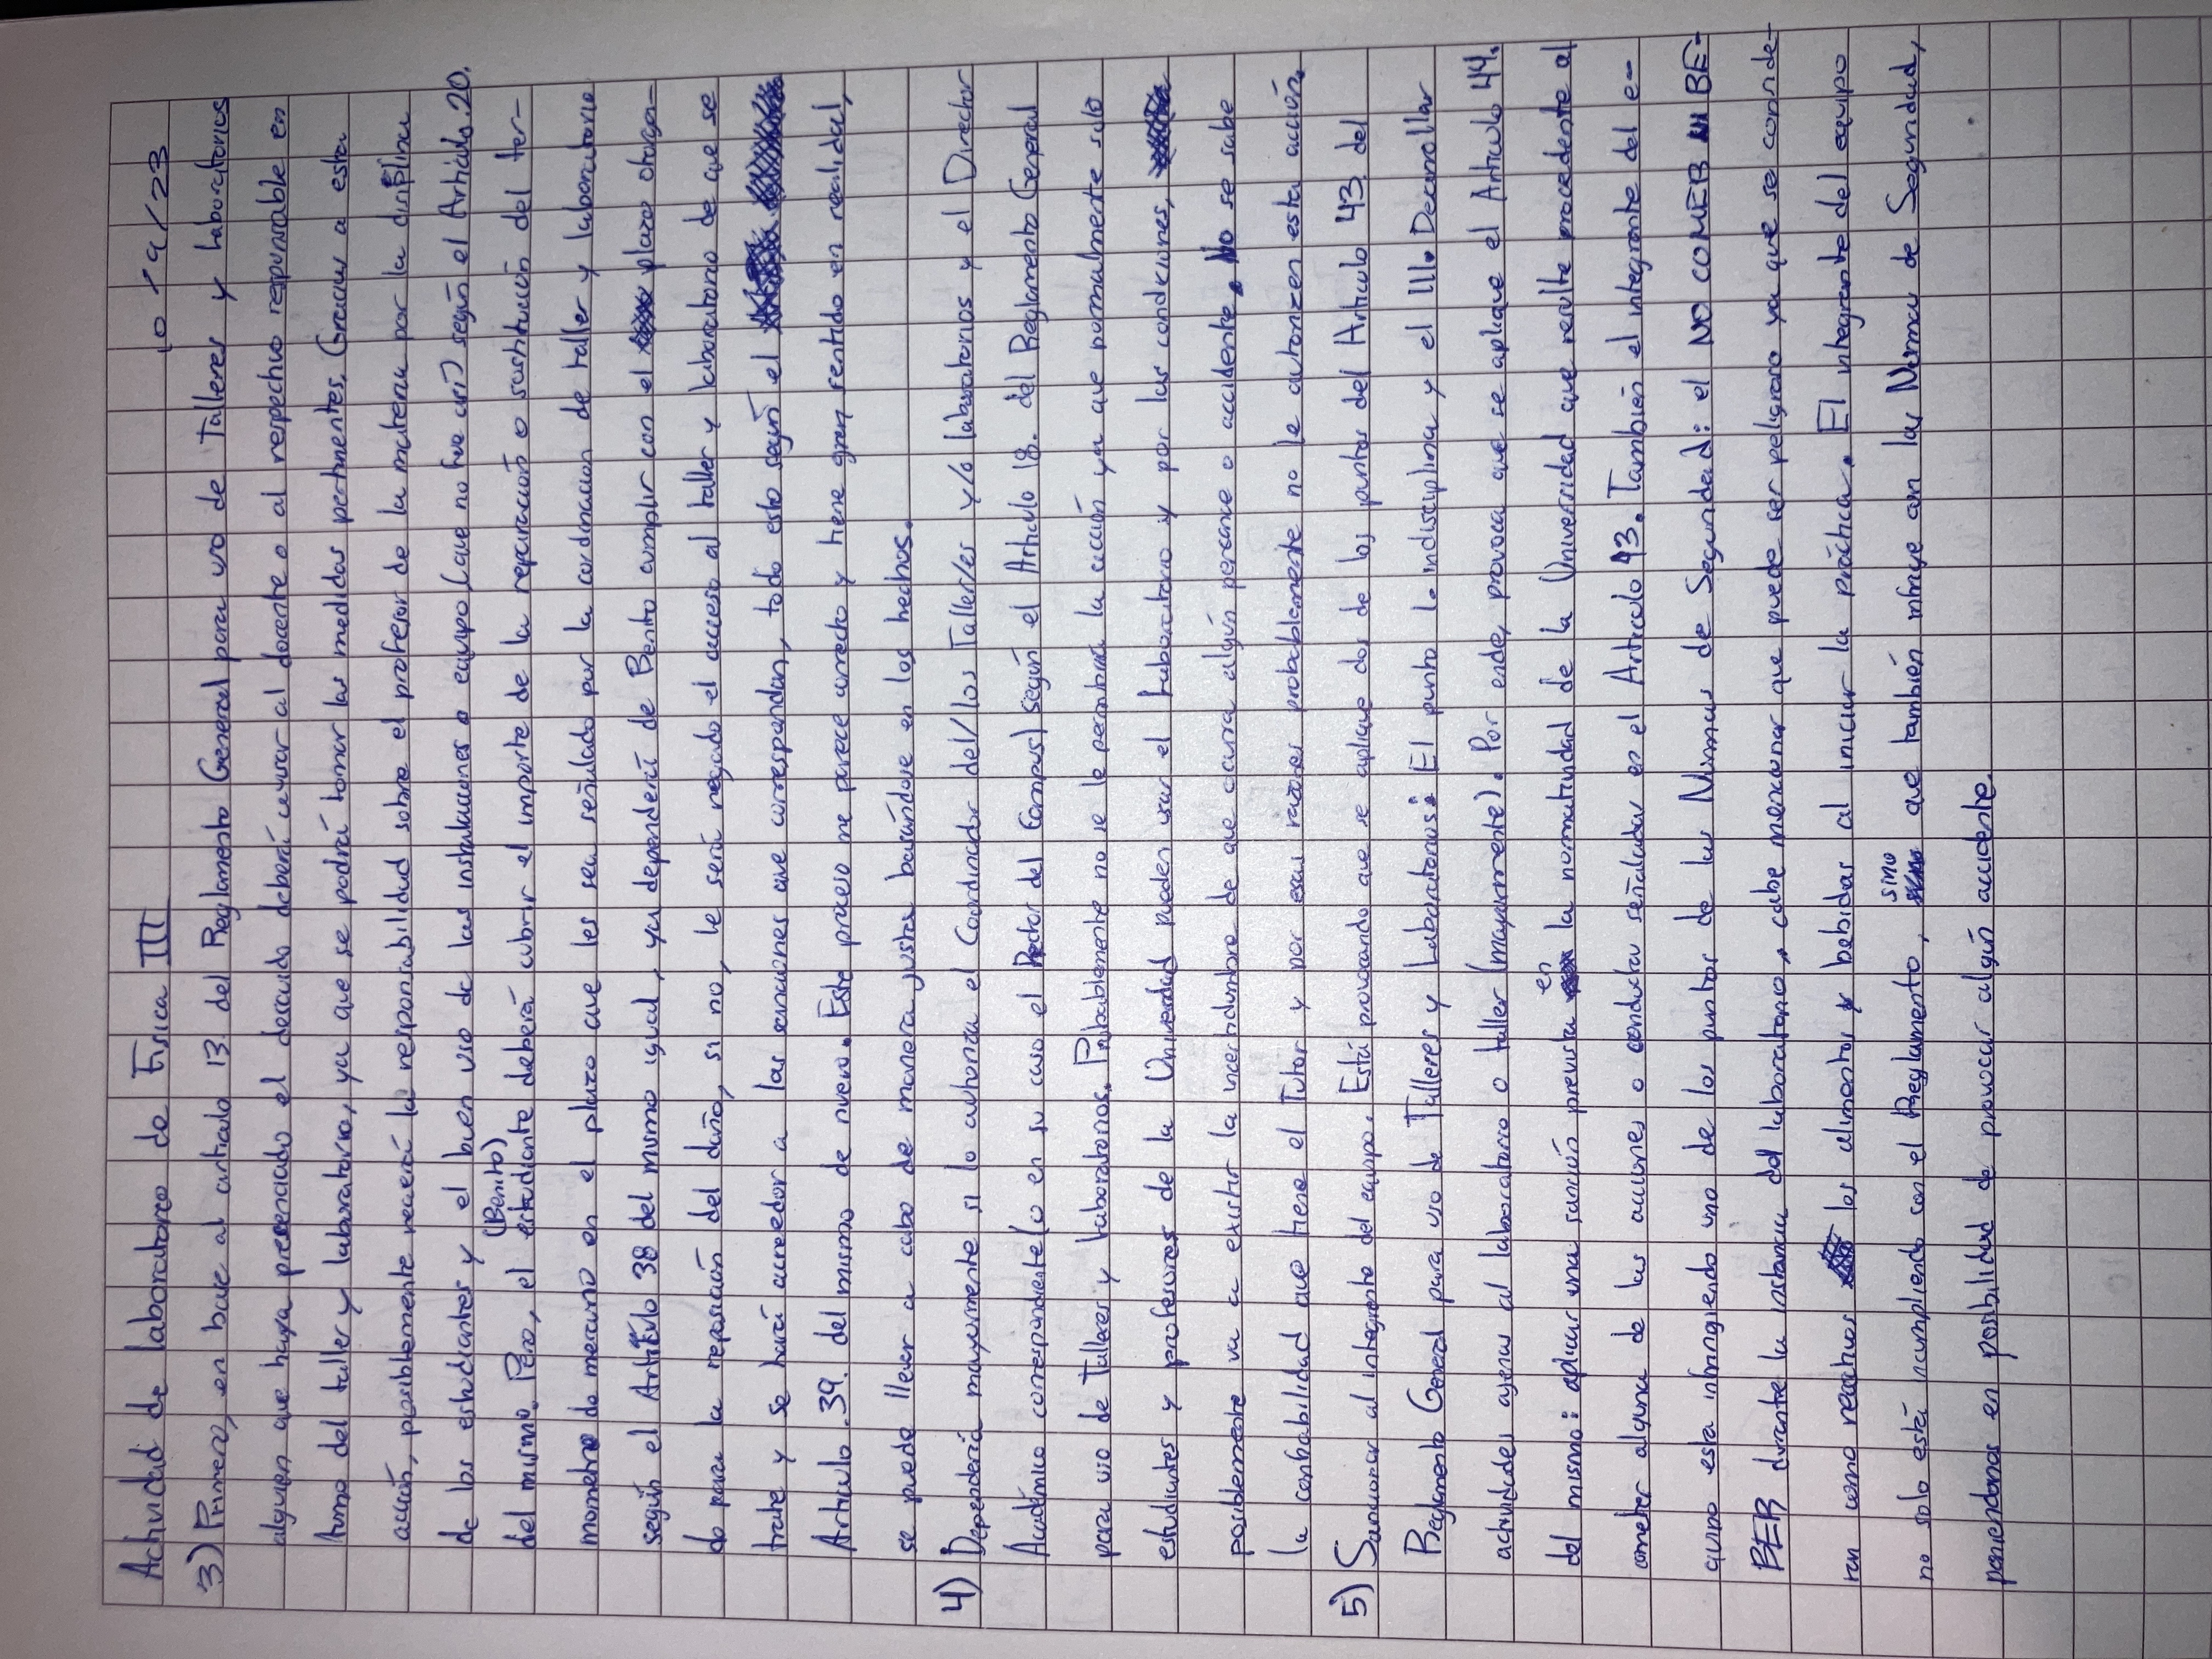 Actividad de laboratorio de Física III 10/9/23
3) Primero, en base al articulo 13. del Reglamento General para uso de Talleres y Laboratorios
alguien que haya presenciado el descuido deberá avisar al docente o al respectivo responsable en
turno del taller y laboratorio, ya que se podrá tomar las medidas pertinentes. Gracias a esta
acción, posiblemente recaerá la responsabilidad sobre el profesor de la materia por la disiplina
de los estudiantes y el buen uso de las instalaciones o equipo (que no fue así) según el Articulo.20.
(Benito)
del mismo. Pero, el estudiante deberá cubrir el importe de la reparación o sustitución del ter-
mometro de mercurio en el plazo que les sea señalado por la cordinacion de taller y laboratorio
según el Artículo 38 del mismo igual, ya dependerá de Benito cumplir con el plazo otorga-
do para la reposición del daño, si no, le será negado el acceso al taller y laboratorio de que se
trate y se hará acreedor a las sanciones que correspondan, todo esto según el
Articulo .39. del mismo de nuevo. Este proceso me parece correcto y tiene gran sentido en realidad,
se puede llevar a cabo de manera justa basándose en los hechos.
4) Dependerá mayormente si lo autoriza el Coordinador del/los Taller/es y/o laboratorios y el Director
Académico correspondiente (o en su caso el Rector del Campus) según el Articulo 18. del Reglamento General
para uso de Talleres y Laboratorios. Probablemente no se le permitirá la acción ya que normalmente solo
estudiantes y profesores de la Universidad pueden usar el Laboratorio y por las condiciones,
posiblemente va a existir la incertidumbre de que ocurra algún percance o accidente. No se sabe
la confiabilidad que tiene el Tutor y por esas razones probablemente no le autorizen esta acción.
5) Sancionar al integrante del equipo. Está provocando que se aplique dos de los puntos del Articulo 43. del
Reglamento General para uso de Talleres y Laboratorios: El punto I. indisciplina y el III. Desarrollar
actividades ajenas al laboratorio o taller (mayormente). Por ende, provoca que se aplique el Articulo 44.
en
del mismo: aplicar una sanción prevista la normatividad de la Universidad que resulte procedente al
cometer alguna de las acciones o conducta señaladas en el Articulo 43. También el integrante del e-
quipo esta infringiendo uno de los puntos de las Normas de Seguridad: el NO COMER NI BE-
BER durante la instancia del laboratorio, cabe mencionar que puede ser peligroso ya que se conside-
ran como reactivos los alimentos y bebidas al iniciar la práctica. El integrante del equipo
sino
no solo está incumpliendo con el Reglamento, que también infringe con las Normas de Seguridad,
poniendonos en posibilidad de provocar algún accidente.